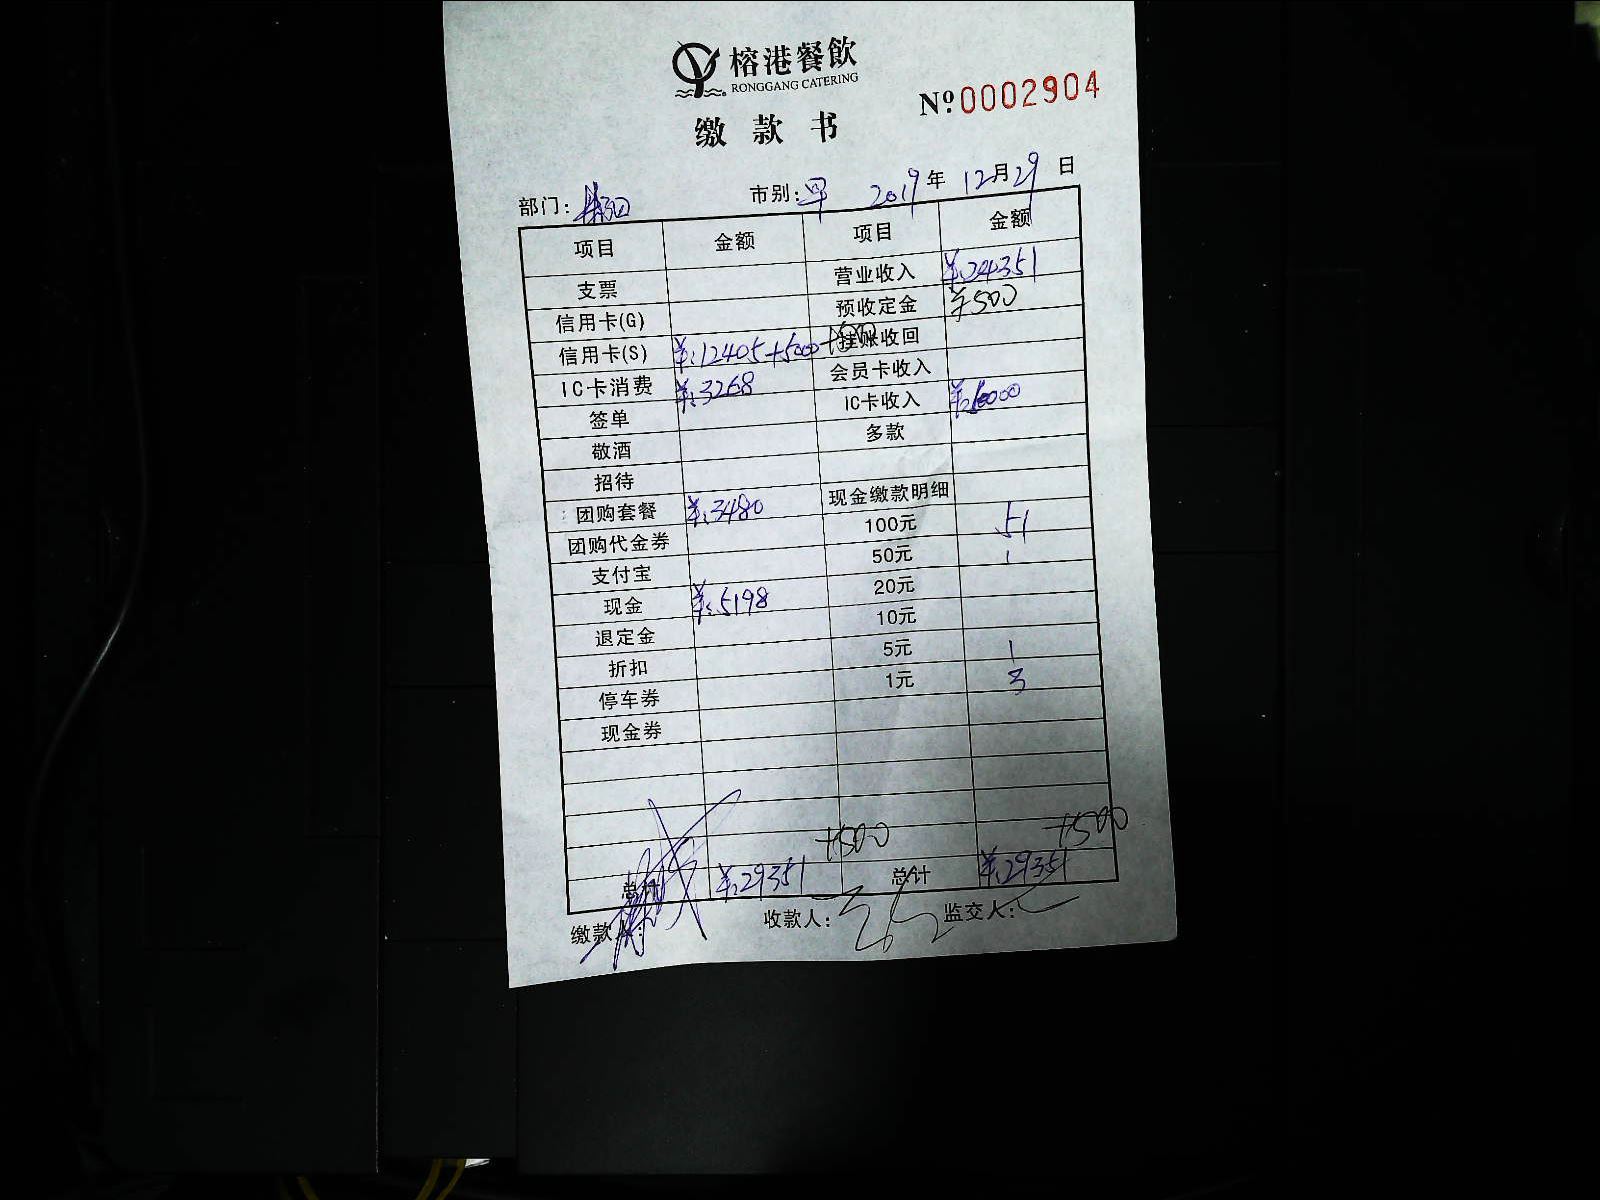 榕港餐飲
RONGGANG CATERING
№0002904
缴款书
部门: 市别:早 2019年12月29日
项目 金额 项目 金额
支票 营业收入 ¥:24351
信用卡(G) 预收定金 ¥500
信用卡(S) ¥:12405+5000+500 挂账收回
IC卡消费 ¥:3268 会员卡收入
签单 IC卡收入
敬酒 多款
招待
团购套餐 ¥:3480 现金缴款明细
团购代金券 100元 51
支付宝 50元 1
现金 ¥:5198 20元
退定金 10元
折扣 5元 1
停车券 1元 3
现金券
+500 +500
总计 ¥:29351 总计 ¥:29351
缴款人: 收款人: 监交人: